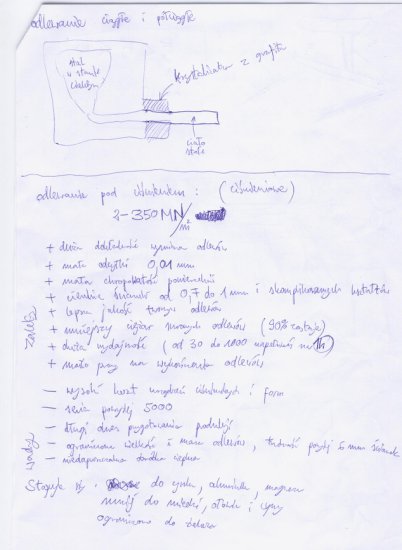 odlewanie ciągłe i półciągłe
stal
w stanie
ciekłym
krystalizator z grafitu
ciało
stałe
odlewanie pod ciśnieniem : (ciśnieniowe)
2-350 MN/m²
zalety
+ duża dokładność wymiarowa odlewów
+ małe odchyłki 0,01 mm
+ mała chropowatość powierzchni
+ cienkie ścianki od 0,7 do 1 mm i skomplikowanych kształtów
+ lepsza jakość odlewów
+ mniejszy ciężar odlewów (90%
+ duża wydajność (od 30 do 1000 na 1h)
+ mało pracy na wykończenie odlewów
wady
- wysoki koszt urządzeń ciśnieniowych i form
- seria powyżej 5000
- długi okres przygotowania produkcji
- ograniczona wielkość i masa odlewów, trudność 6 mm ścianek
- obróbka cieplna
Stosuje się do cynku, aluminium, magnezu
mniej do miedzi, ołowiu i cyny
ograniczone do żelaza